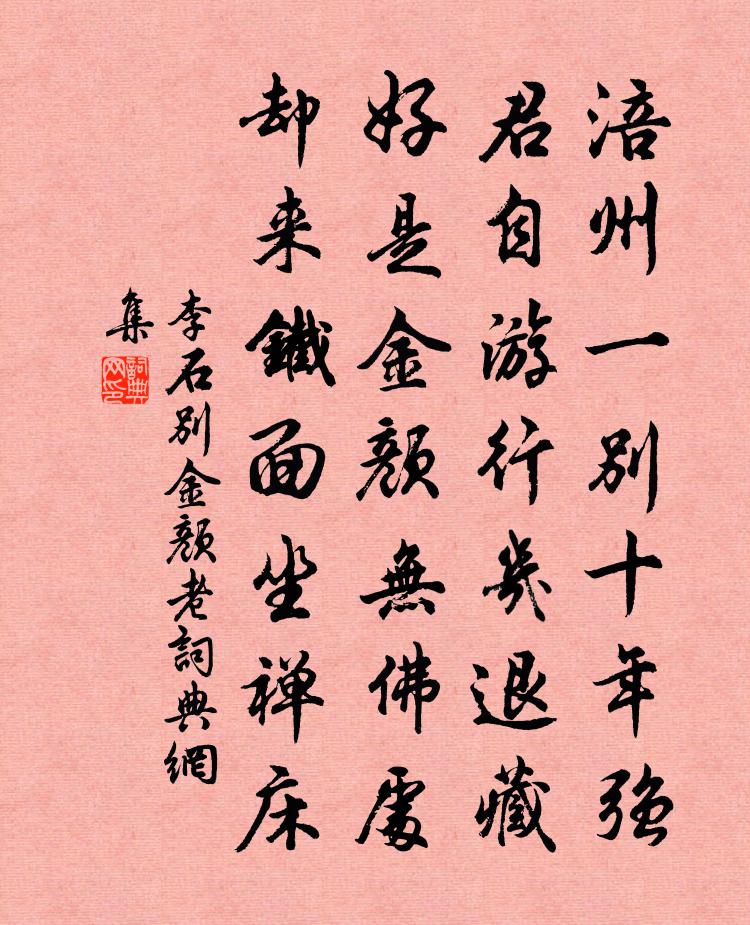 涪州一别十年强
君自游行我退藏
好是金颜無佛處
却来鐵面坐禅床
李石别金颜老詞典網
集
詞典网印